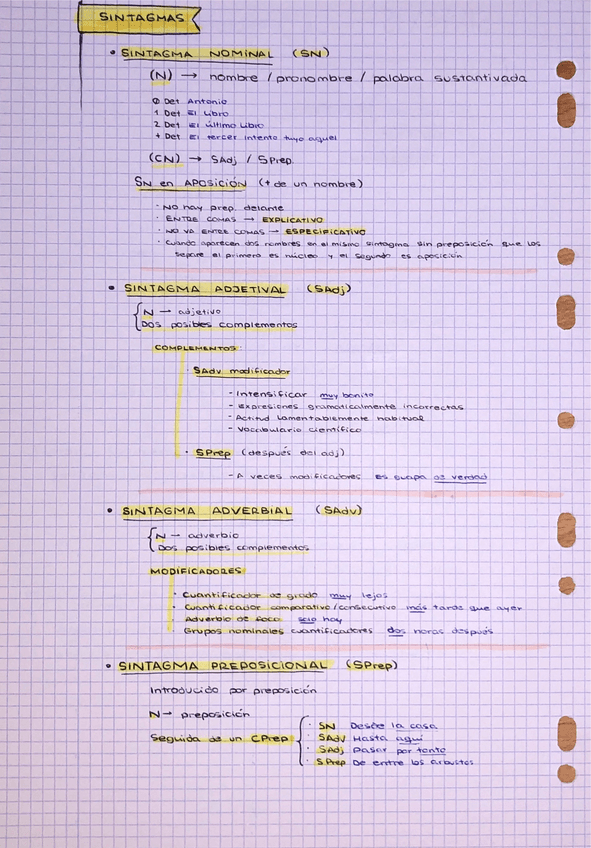 SINTAGMAS
• SINTAGMA NOMINAL (SN)
(N) → nombre / pronombre / palabra sustantivada
0 Det Antonio
1 Det El Libro
2 Det El último Libro
+ Det El tercer intento tuyo aquel
(CN) → SAdj / SPrep.
SN en APOSICIÓN (+ de un nombre)
· NO hay prep. delante
· ENTRE COMAS → EXPLICATIVO
· NO VA ENTRE COMAS → ESPECIFICATIVO
· Cuando aparecen dos nombres en el mismo sintagma sin preposición que los
separe el primero es núcleo y el segundo es aposición
• SINTAGMA ADJETIVAL (SAdj)
N → adjetivo
Dos posibles complementos
COMPLEMENTOS:
· SAdv modificador
- Intensificar muy bonito
- Expresiones gramaticalmente incorrectas
- Actitud Lamentablemente habitual
- Vocabulario científico
· SPrep (después del adj)
- A veces modificadores es guapa de verdad
• SINTAGMA ADVERBIAL (SAdv)
N → adverbio
Dos posibles complementos
MODIFICADORES
· Cuantificador de grado muy lejos
· Cuantificador comparativo/consecutivo más tarde que ayer
· Adverbio de foco solo hoy
· Grupos nominales cuantificadores dos horas después
• SINTAGMA PREPOSICIONAL (SPrep)
Introducido por preposición
N → preposición
Seguida de un CPrep
· SN Desde la casa
· SAdv Hasta aquí
· SAdj Pasar por tonto
· SPrep De entre los arbustos